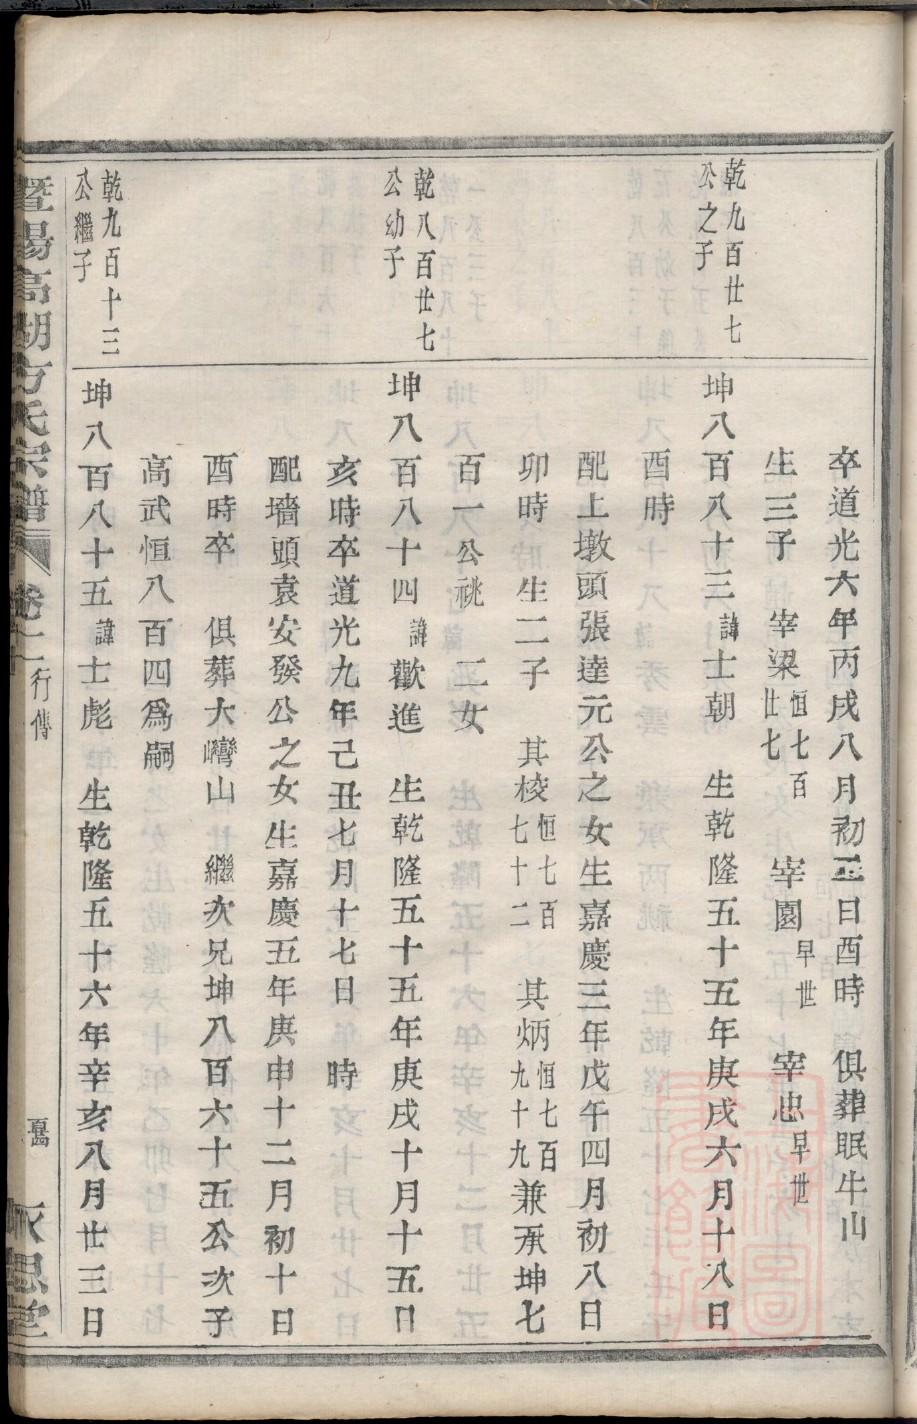 卒道光六年丙戌八月初三日酉時　俱葬眠牛山
生三子　宰梁恒七百世七　宰園早世　宰忠早世
乾九百廿七公之子
坤八百八十三諱士朝　生乾隆五十五年庚戌六月十八日
酉時
配上墩頭張達元公之女生嘉慶三年戊午四月初八日
卯時生二子　其棱恒七百七十二　其炳恒七百九十九兼承坤七
百一公祧　二女
乾八百廿七公幼子
坤八百八十四諱歡進　生乾隆五十五年庚戌十月十五日
亥時卒道光九年己丑七月十七日　時
配墻頭袁安發公之女生嘉慶五年庚申十二月初十日
酉時卒　俱葬大灣山　繼次兄坤八百六十五公次子
高武恒八百四爲嗣
乾九百十三公繼子
坤八百八十五諱士彪　生乾隆五十六年辛亥八月廿三日
暨陽高湖方氏宗譜　卷十　行傳　永思堂